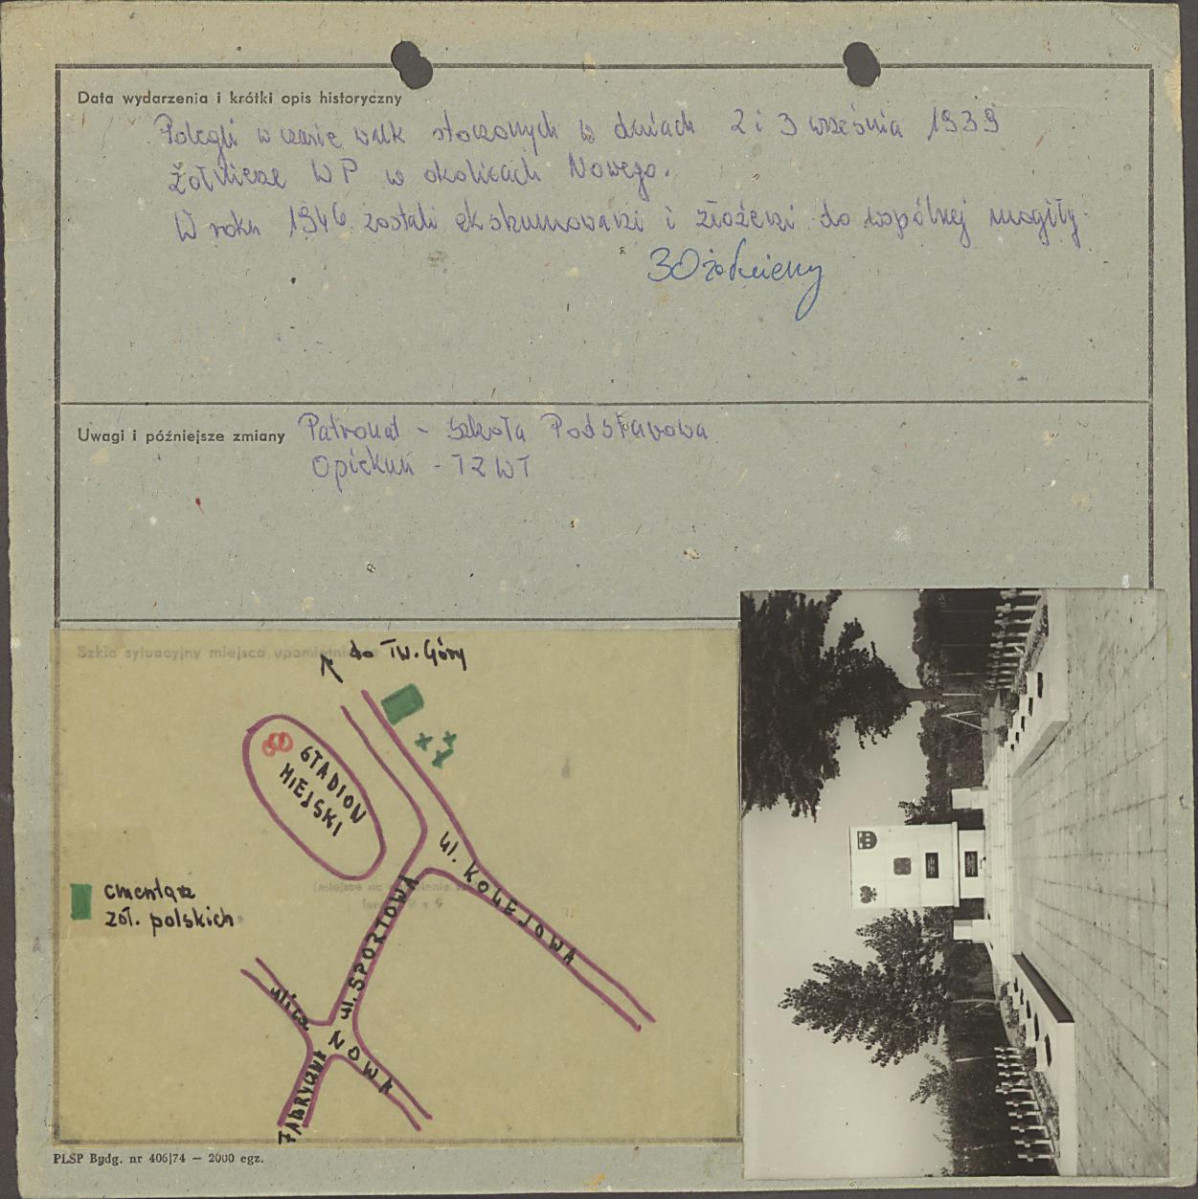 Data wydarzenia i krótki opis historyczny
Polegli w czasie walk stoczonych w dniach 2 i 3 września 1939
żołnierze WP w okolicach Nowego.
W roku 1946 zostali ekshumowani i złożeni do wspólnej mogiły.
30 żołnierzy
Uwagi i późniejsze zmiany
Patronat - Szkoła Podstawowa
Opiekun - TZWT
Szkic sytuacyjny miejsca
do Tw. Góry
STADION
MIEJSKI
ul. KOLEJOWA
cmentarz
żoł. polskich
ul. SPORTOWA
ulica
NOWA
FABRYCZNA
PLSP Bydg. nr 406|74 — 2000 egz.